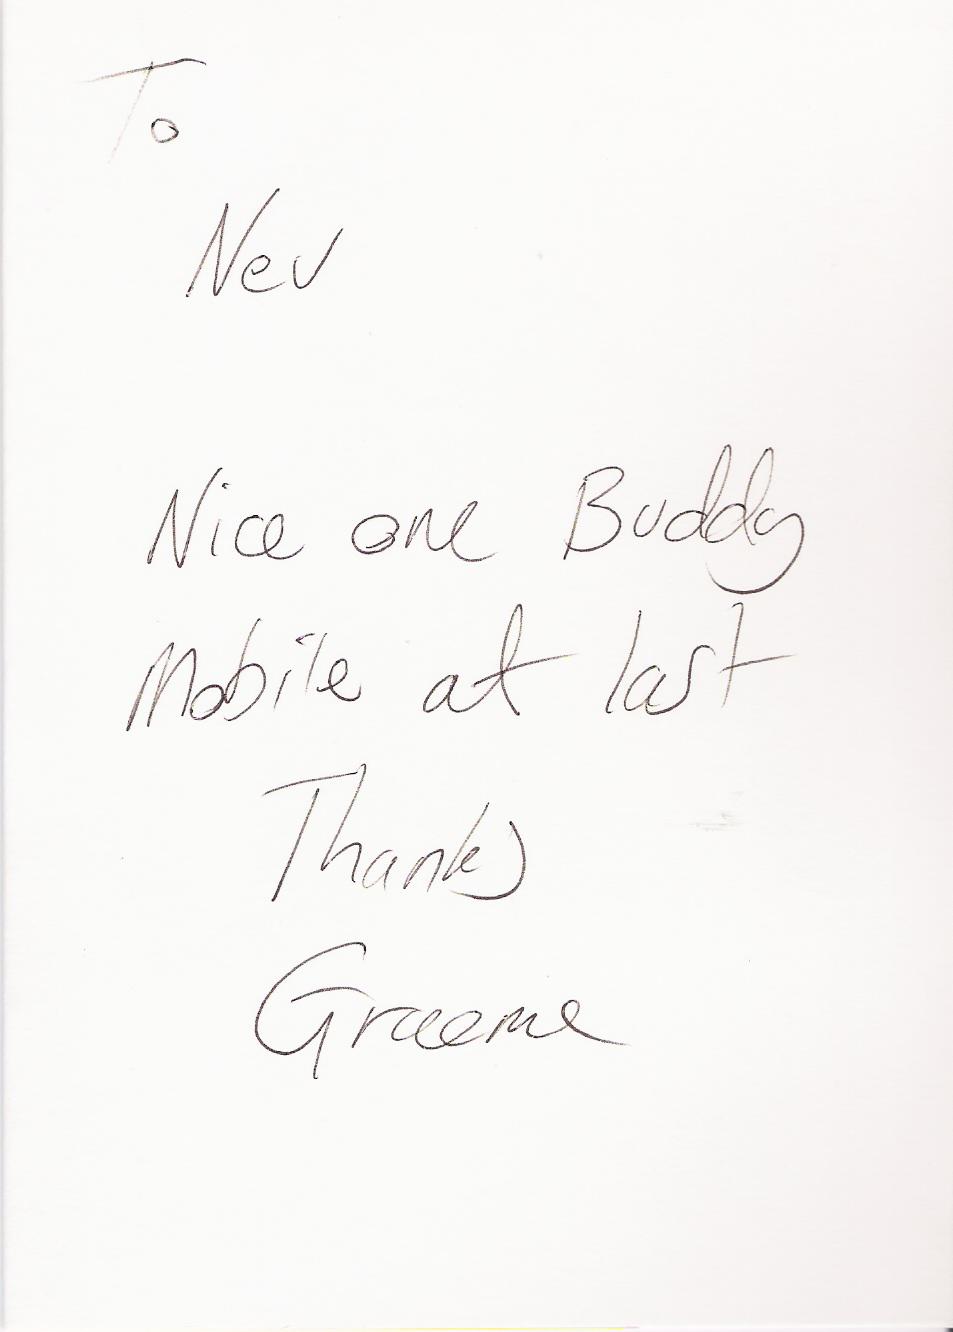 To
Nev
Nice one Buddy
Mobile at last
Thanks
Graeme